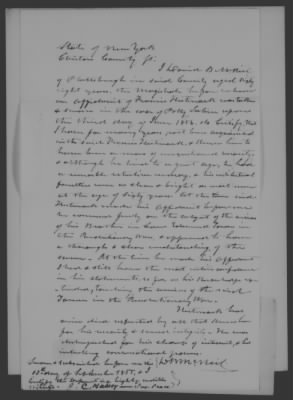 State of New York
Clinton County ss.
I David B. McNeil
of Plattsburgh in said County aged sixty
eight years, the magistrate before whom
an affidavit of Francis Heitmarsh was taken
& sworn in the case of Polly
the third day of June 1852. do certify, that
I have for many years past been acquainted
with said Francis Heitmarsh, & know him to
have been a man of unquestioned veracity,
& although he lived to great age, he had
a remarkable retentive memory, & his intellectual
faculties were as clear & bright as most men
at the age of sixty years. At the time said
Heitmarsh made his affidavit before me
he conversed freely on the subject of the services
of his Brother in
the Revolutionary War & appeared to have
a thorough & clear understanding of the
same. At the time he made his affidavit
I had & still have the most entire confidence
in his statements, so far as his knowledge ex-
tended, touching the services of the said
in the Revolutionary War.
Heitmarsh has
since died respected by all that knew him
for his veracity & moral integrity. He was
distinguished for his strong & intell-
conversational powers.
Sworn & subscribed before me this D. B. McNeil
13 day of September 1855. & I
certify the deponent is a highly credible
witness.